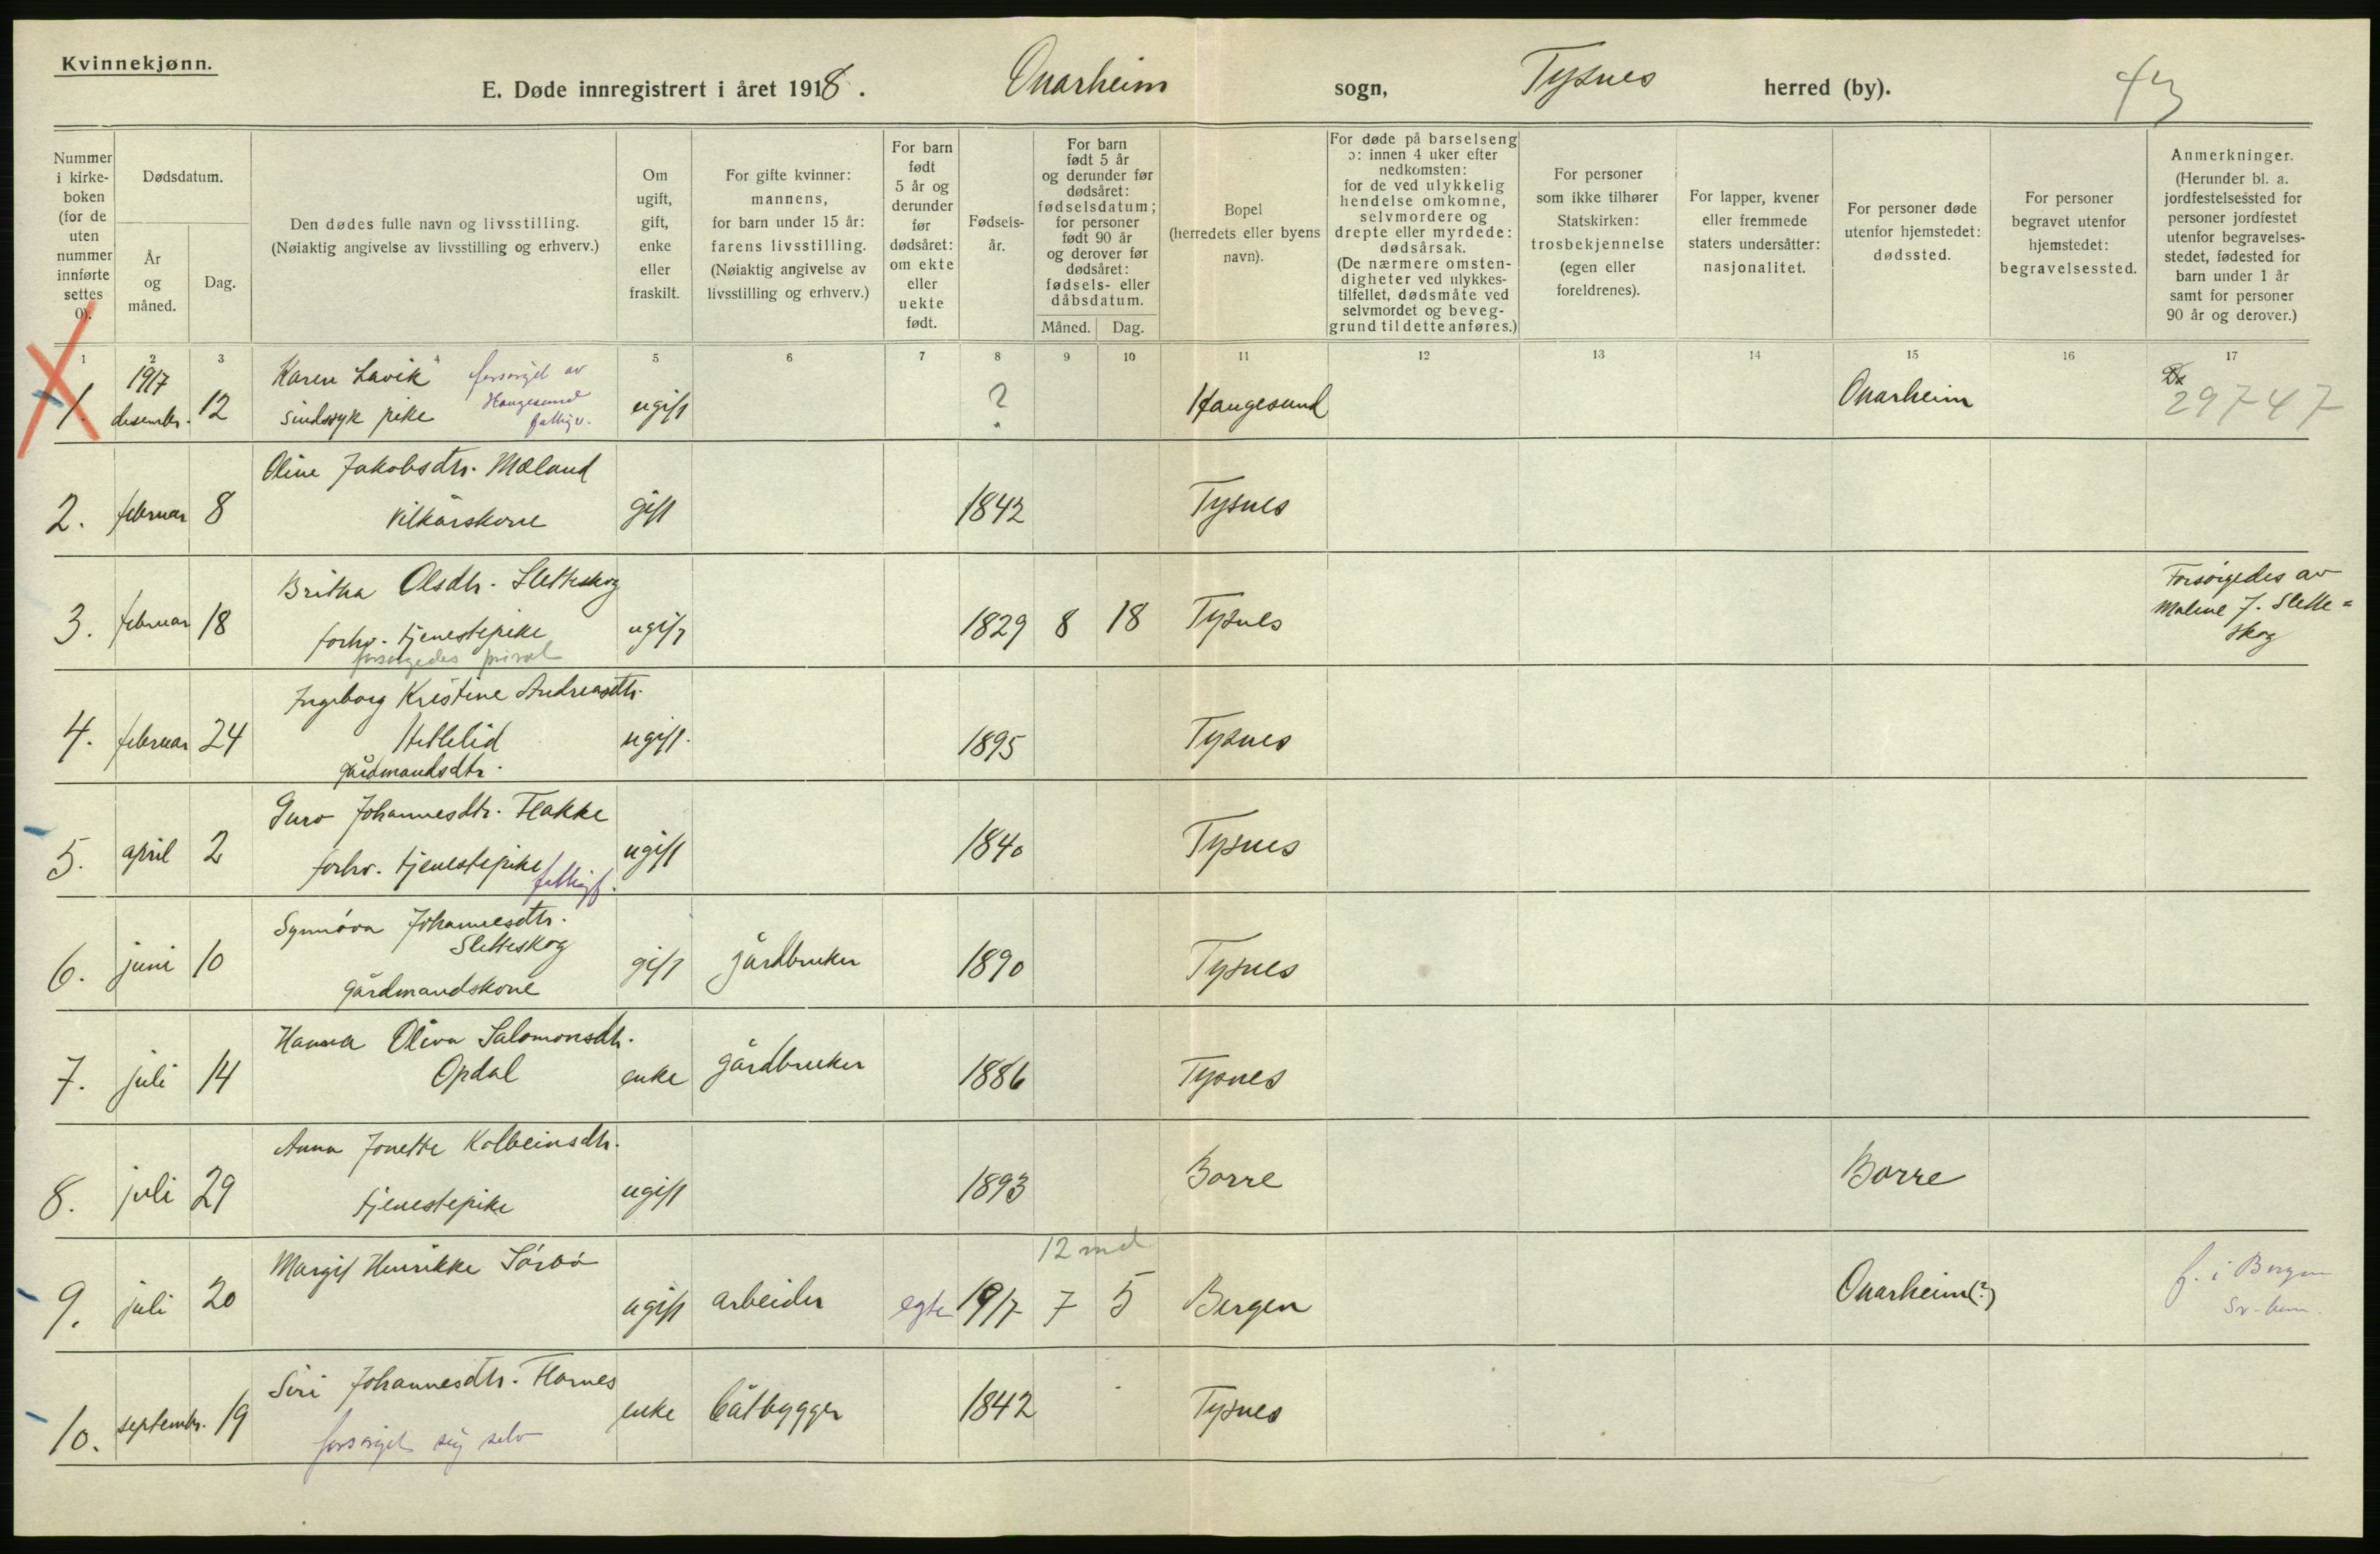 Kvinnekjønn.
E. Døde innregistrert i året 1918. Onarheim sogn, Tysnes herred (by). 43
Nummer i kirke-boken (for de uten nummer innførte settes 0).
Dødsdatum.
År og måned.
Dag.
Den dødes fulle navn og livsstilling.
(Nøiaktig angivelse av livsstilling og erhverv.)
Om ugift, gift, enke eller fraskilt.
For gifte kvinner: mannens, for barn under 15 år: farens livsstilling. (Nøiaktig angivelse av livsstilling og erhverv.)
For barn født 5 år og derunder før dødsåret: om ekte eller uekte født.
Fødsels-år.
For barn født 5 år og derunder før dødsåret: fødselsdatum; for personer født 90 år og derover før dødsåret: fødsels- eller dåbsdatum.
Måned. Dag.
Bopel (herredets eller byens navn).
For døde på barselseng ɔ: innen 4 uker efter nedkomsten: for de ved ulykkelig hendelse omkomne, selvmordere og drepte eller myrdede: dødsårsak. (De nærmere omsten-digheter ved ulykkes-tilfellet, dødsmåte ved selvmordet og beveg-grund til dette anføres.)
For personer som ikke tilhører Statskirken: trosbekjennelse (egen eller foreldrenes).
For lapper, kvener eller fremmede staters undersåtter: nasjonalitet.
For personer døde utenfor hjemstedet: dødssted.
For personer begravet utenfor hjemstedet: begravelsessted.
Anmerkninger. (Herunder bl. a. jordfestelsessted for personer jordfestet utenfor begravelses-stedet, fødested for barn under 1 år samt for personer 90 år og derover.)
1 2 3 4 5 6 7 8 9 10 11 12 13 14 15 16 17
1. 1917 desember. 12 Karen Lavik sindssyk pike forsørget av Haugesund fattigv. ugift ? Haugesund Onarheim 29747
2. februar 8 Oline Jakobsdtr. Mæland vilkårskone gift 1842 Tysnes
3. februar 18 Britha Olsdtr. Sletteskog forhv. tjenestepike forsørgedes privat ugift 1829 8 18 Tysnes Forsørgedes av Malene J. Slette=skog
4. februar 24 Ingeborg Kristine Andreasdtr. Hetlelid gårdmandsdtr. ugift. 1895 Tysnes
5. april 2 Guro Johannesdtr. Flakke forhv. tjenestepike fattigf. ugift 1840 Tysnes
6. juni 10 Synnøva Johannesdtr. Sletteskog gårdmandskone gift gårdbruker 1890 Tysnes
7. juli 14 Hanna Oliva Salomonsdtr. Opdal enke gårdbruker 1886 Tysnes
8. juli 29 Anna Jonette Kolbeinsdtr. tjenestepike ugift 1893 Borre Borre
9. juli 20 Margit Henrikke Sørbø ugift arbeider egte 1917 12 md 7 5 Bergen Onarheim(?) f. i Bergen
10. septembr. 19 Siri Johannesdtr. Flornes forsørget sig selv enke båtbygger 1842 Tysnes